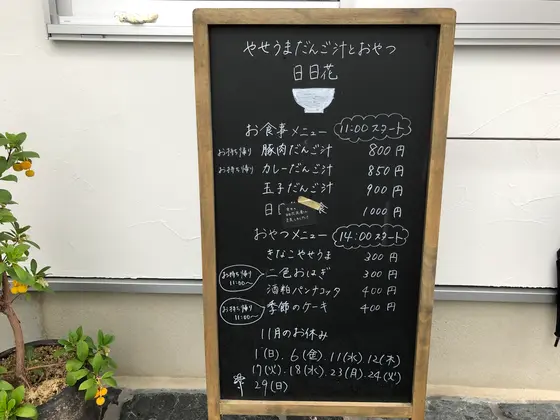 やせうまだんご汁とおやつ
日日花
お食事メニュー 11:00スタート
お持ち帰り 豚肉だんご汁 800円
お持ち帰り カレーだんご汁 850円
玉子だんご汁 900円
日 1000円
おやつメニュー 14:00スタート
きなこやせうま 300円
お持ち帰り 11:00〜 二色おはぎ 300円
酒粕パンナコッタ 400円
お持ち帰り 11:00〜 季節のケーキ 400円
11月のお休み
1(日).6(金).11(水).12(木)
17(火).18(水).23(月).24(火)
29(日)